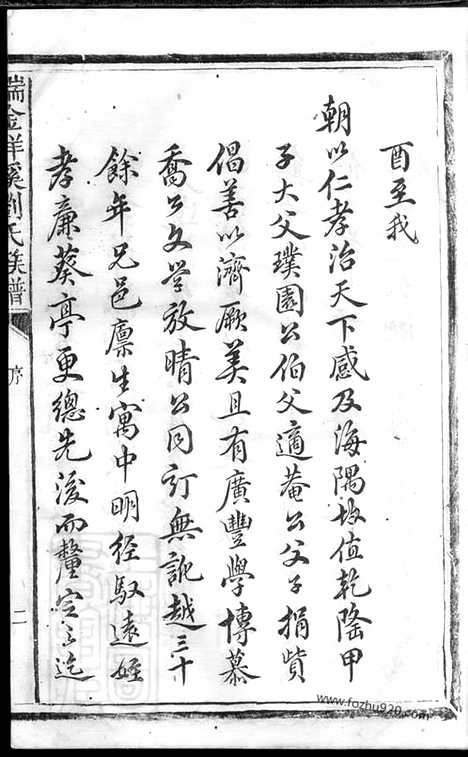 酉至我
朝以仁孝治天下感及海隅故值乾隆甲
子大父璞園公伯父適菴公父子捐貲
倡善以濟厥美且有廣豐學博慕
喬公文學放晴公同訂無訛越三十
餘年兄邑廪生寓中明經馭遠姪
孝廉葵亭更總先後而釐定之迄
瑞金祥溪劉氏族譜
序
二
www.fozhu920.com